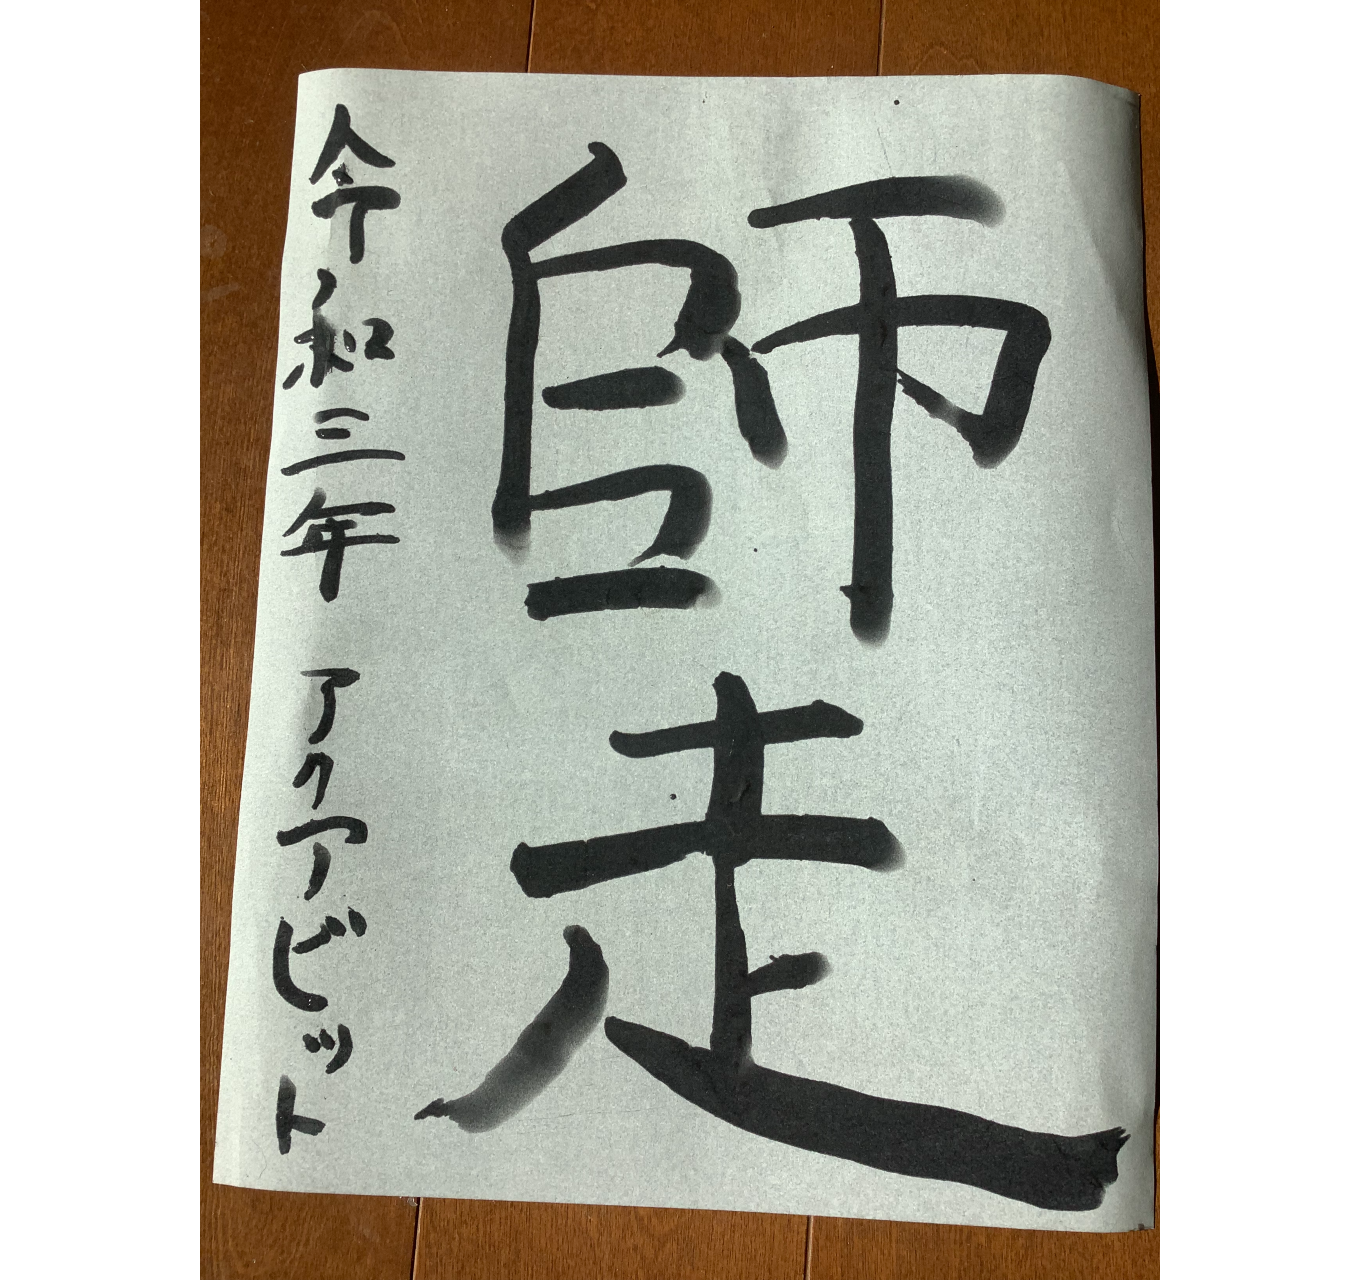 師走
令和三年 アクアビット